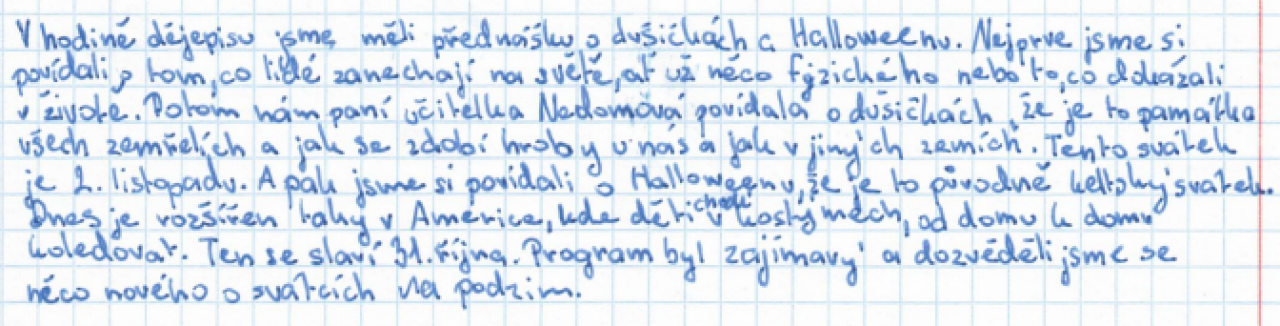 V hodině dějepisu jsme měli přednášku o dušičkách a Halloweenu. Nejprve jsme si
povídali o tom, co lidé zanechají na světě, ať už něco fyzického nebo to, co dokázali
v životě. Potom nám paní učitelka Nedomová povídala o dušičkách, že je to památka
všech zemřelích a jak se zdobí hroby u nás a jak v jiných zemích. Tento svátek
je 2. listopadu. A pak jsme si povídali o Halloweenu, že je to původně keltský svátek.
Dnes je rozšířen taky v Americe, kde děti chodí v kostýmech, od domu k domu
koledovat. Ten se slaví 31. října. Program byl zajímavý a dozvěděli jsme se
něco nového o svátcích na podzim.